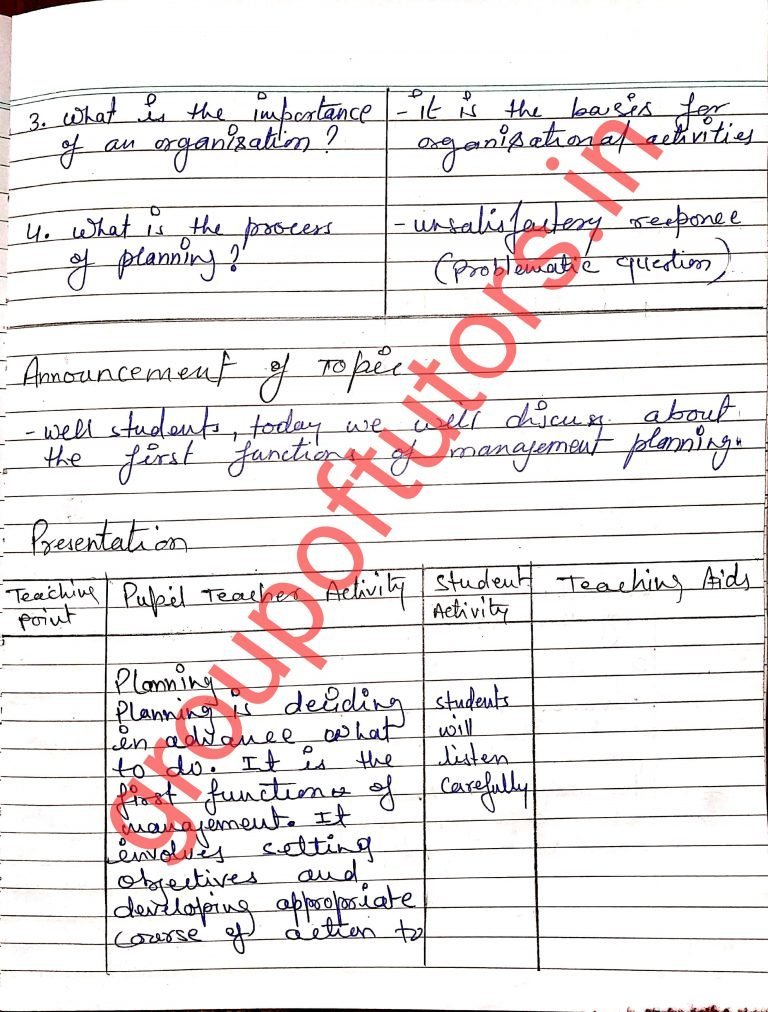 3. What is the importance
of an organization?
- it is the basis for
organisational activities
4. What is the process
of planning?
- unsatisfactory responce
(Problematic question)
Announcement of Topic
- well students, today we will discuss about
the first functions of management planning.
Presentation
Teaching Point
Pupil Teacher Activity
Student Activity
Teaching Aids
Planning
Planning is deciding
in advance what
to do. It is the
first functions of
management. It
involves setting
objectives and
developing appropriate
course of action to
students
will
listen
carefully
groupoftutors.in